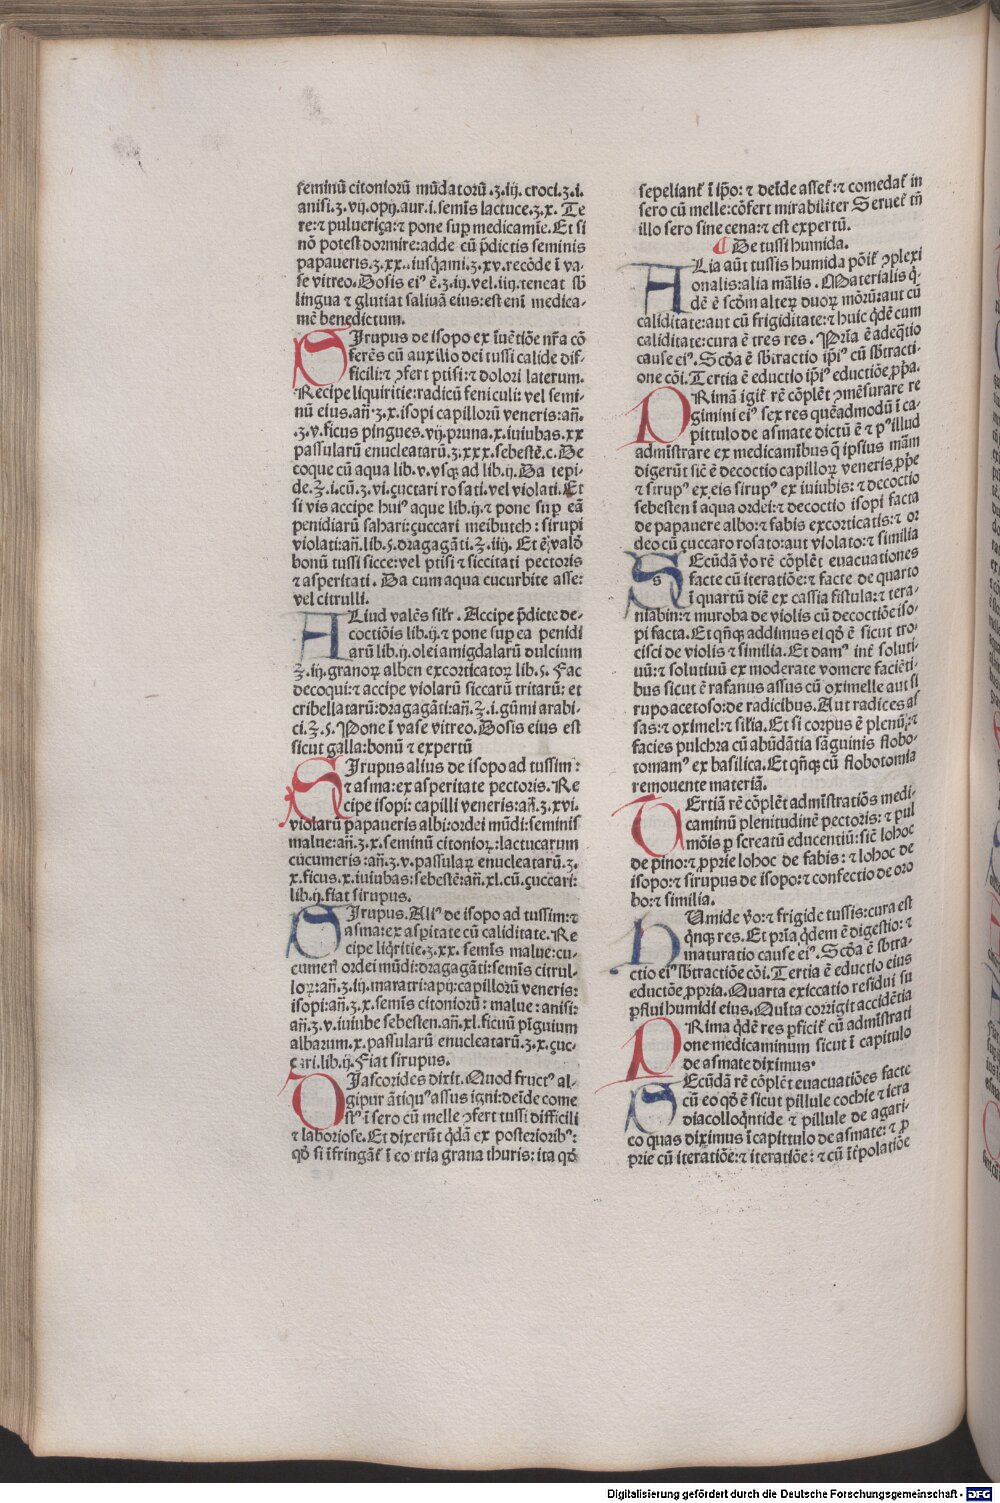 seminū citonioꝝ mūdatorū .ʒ.iij. croci.ʒ.i.
anisi.ʒ.vij.opij.aur.i.semīs lactuce.ʒ.x. Te
re:ꞇ pulueriça:ꞇ pone suꝑ medicamīe. Et si
nō potest dormire:adde cū p̄dictis seminis
papaueris.ʒ.xx..iusq̄ami.ʒ.xv.recōde ī va-
se vitreo.Dosis eiꝰ ē.ʒ.iij.vel.iiij.teneat sb̄
lingua ꞇ glutiat saliuā eius:est enī medica-
mē benedictum.
SIrupus de isopo ex īuētiōe nr̄a cō
ferēs cū auxilio dei tussi calide dif-
ficili:ꞇ ↄfert ptisi:ꞇ dolori laterum.
Recipe liquiritie:radicū feniculi: vel semi-
nū eius.an̄.ʒ.x.isopi capillorū veneris:an̄.
.ʒ.v.ficus pingues.vij.pruna.x.iuiubas.xx
passularū enucleatarū.ʒ.xxx.sebestē.c. De
coque cū aqua lib.v.vsqꝫ ad lib.ij. Da tepi-
de.℥.i.cū.ʒ.vi.çuctari rosati.vel violati.Et
si vis accipe huiꝰ aque lib.ij.ꞇ pone suꝑ eā
penidiarū sahari:çuccari meibuteh: sirupi
violati:an̄.lib.ſ.dragagāti.℥.iiij. Et ē valō
bonū tussi sicce:vel ptisi ꞇ siccitati pectoris
ꞇ asperitati. Da cum aqua cucurbite asse:
vel citrulli.
ALiud valēs silr̄. Accipe p̄dicte de-
coctiōis lib.ij.ꞇ pone suꝑ ea penidi
arū lib.ij.olei amigdalarū dulcium
℥.iij.granoꝝ alben excorticatoꝝ lib.ſ. Fac
decoqui:ꞇ accipe violarū siccarū tritarū: et
cribellatarū:dragagāti:an̄.℥.i.gūmi arabi-
ci.℥.ſ. Pone ī vase vitreo.Dosis eius est
sicut galla:bonū ꞇ expertū
SIrupus alius de isopo ad tussim:
ꞇ asma:ex asperitate pectoris. Re
cipe isopi: capilli veneris:an̄.ʒ.xvi.
violarū papaueris albi:ordei mūdi:seminis
malue:an̄.ʒ.x.seminū citonioꝝ:lactucarum
cucumeris:an̄.ʒ.v.passulaꝝ enucleatarū.ʒ.
x.ficus.x.iuiubas:sebestē:an̄.xl.cū.çuccari:
lib.ij.fiat sirupus.
SIrupus.Aliꝰ de isopo ad tussim:ꞇ
asma:ex aspitate cū caliditate.Re
cipe liqritie.ʒ.xx. semīs malue:cu-
cumeꝝ ordei mūdi:dragagāti:semīs citrul-
loꝝ:an̄.ʒ.iij.maratri:apij:capillorū veneris:
isopi:an̄.ʒ.x.semīs citoniorū: malue:anisi:
an̄.ʒ.v.iuiube sebesten.an̄.xl.ficuū pīguium
albarum.x.passularū enucleatarū.ʒ.x.çuc-
cari.lib.ij.Fiat sirupus.
DIascorides dixit.Quod fructꝰ al-
gipur ātiqꝰ assus igni:deīde come
stꝰ ī sero cū melle ↄfert tussi difficili
ꞇ laboriose.Et dixerūt q̄dā ex posterioribꝰ:
qō si īfringāt̄ ī eo tria grana thuris:ita qō
sepeliant̄ ī ip̄o: ꞇ deīde asset̄:ꞇ comedat̄ in
sero cū melle:cōfert mirabiliter Seruet̄ tn̄
illo sero sine cena:ꞇ est expertū.
¶ De tussi humida.
ALia aūt tussis humida pōit̄ ↄplexi
onalis:alia māl̄is. Materialis q̄-
dē ē scōm alteꝝ duoꝝ mōrū:aut cū
caliditate:aut cū frigiditate:ꞇ huic q̄dē cum
caliditate:cura ē tres res. Prīa ē adeq̄tio
cause eiꝰ.Scōa ē sb̄tractio ip̄iꝰ cū sb̄tracti-
one cōi.Tertia ē eductio ip̄iꝰ eductiōe ꝓp̄a.
PRimā igit̄ rē cōplēt ↄmēsurare re
gimini eiꝰ sex res quēadmodū ī ca-
pittulo de asmate dictū ē ꞇ pꝰ illud
admīstrare ex medicamībus q̄ ipsius mām
digerūt sic̄ ē decoctio capilloꝝ veneris ꝓp̄e
ꞇ sirupꝰ ex eis sirupꝰ ex iuiubis: ꞇ decoctio
sebesten ī aqua ordei:ꞇ decoctio isopi facta
de papauere albo:ꞇ fabis excorticatis:ꞇ or
deo cū çuccaro rosato:aut violato:ꞇ similia
SEcūdā v̄o rē cōplēt euacuationes
facte cū iteratiōe:ꞇ facte de quarto
ī quartū diē ex cassia fistula:ꞇ tera-
niabin:ꞇ muroba de violis cū decoctiōe iso-
pi facta. Et qn̄qꝫ addimus ei qō ē sicut tro-
cisci de violis ꞇ similia.Et damꝰ int̄ soluti-
uū:ꞇ solutiuū ex moderate vomere faciēti-
bus sicut ē rafanus assus cū oximelle aut si
rupo acetoso:de radicibus. Aut radices as
sas:ꞇ oximel:ꞇ silīa. Et si corpus ē plenū:ꞇ
facies pulchra cū abūdātia sāguinis flobo-
tomamꝰ ex basilica.Et qn̄qꝫ cū flobotomia
remouente materiā.
TErtiā rē cōplēt admīstratiōs medi-
caminū plenitudinē pectoris: ꞇ pul
mōis ꝑ screatū educentiū: sic̄ lohoc
de pino:ꞇ ꝓprie lohoc de fabis: ꞇ lohoc de
isopo:ꞇ sirupus de isopo:ꞇ confectio de oro
bo:ꞇ similia.
HUmide v̄o:ꞇ frigide tussis:cura est
q̄nqꝫ res. Et prīa q̄dem ē digestio: ꞇ
maturatio cause eiꝰ. Scōa ē sb̄tra-
ctio eiꝰ sb̄tractiōe cōi.Tertia ē eductio eius
eductōe ꝓpria.Quarta exiccatio residui su
ꝑflui humidi eius.Quīta corrigit accidētia
PRima q̄dē res ꝑficit̄ cū admīstrati
one medicaminum sicut ī capitulo
de asmate diximus.
SEcūdā rē cōplēt euacuatiōes facte
cū eo qō ē sicut pillule cochie ꞇ iera
diacolloq̄ntide ꞇ pillule de agari-
co quas diximus ī capittulo de asmate: ꞇ ꝓ
prie cū iteratiōe:ꞇ iteratiōe: ꞇ cū īt̄polatiōe
Digitalisierung gefördert durch die Deutsche Forschungsgemeinschaft - DFG